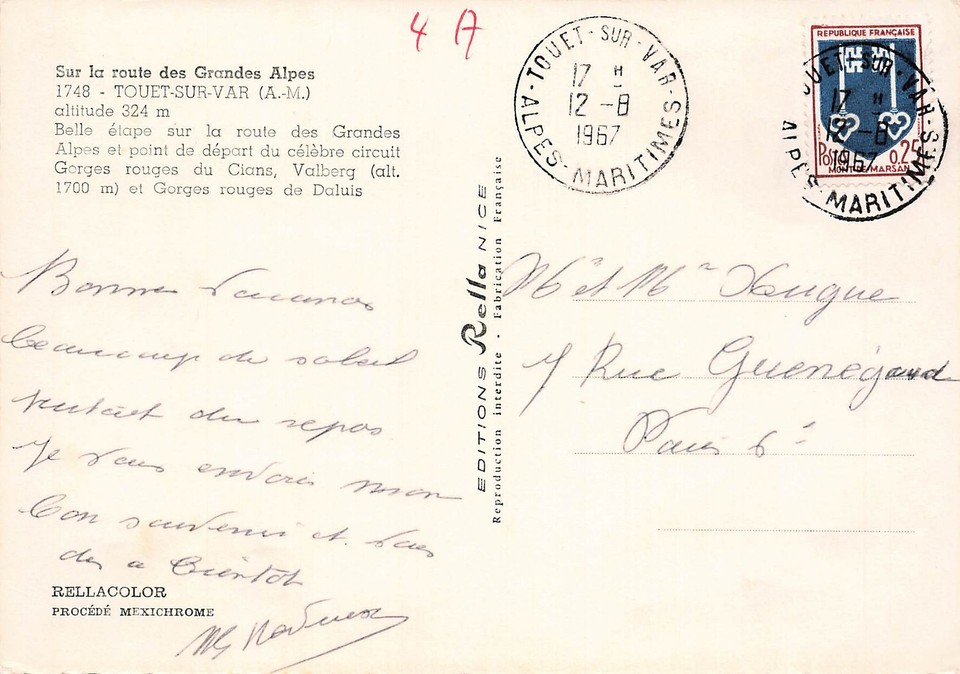 4 A
Sur la route des Grandes Alpes
1748 - TOUET-SUR-VAR (A.-M.)
altitude 324 m
Belle étape sur la route des Grandes
Alpes et point de départ du célèbre circuit
Gorges rouges du Cians, Valberg (alt.
1700 m) et Gorges rouges de Daluis
Bonnes Vacances
beaucoup de soleil
surtout du repos
Je vous envoie mon
bon souvenir et vous
dis a bientot
RELLACOLOR
PROCÉDÉ MEXICHROME
EDITIONS Rella NICE
Reproduction interdite - Fabrication Française
TOUET-SUR-VAR
17 H
12-8
1967
ALPES-MARITIMES
REPUBLIQUE FRANÇAISE
Postes 0.25
MONT-DE-MARSAN
TOUET-SUR-VAR
17 H
12-8
1967
ALPES-MARITIMES
Mr et Me
7 Rue Guenégaud
Paris 6è